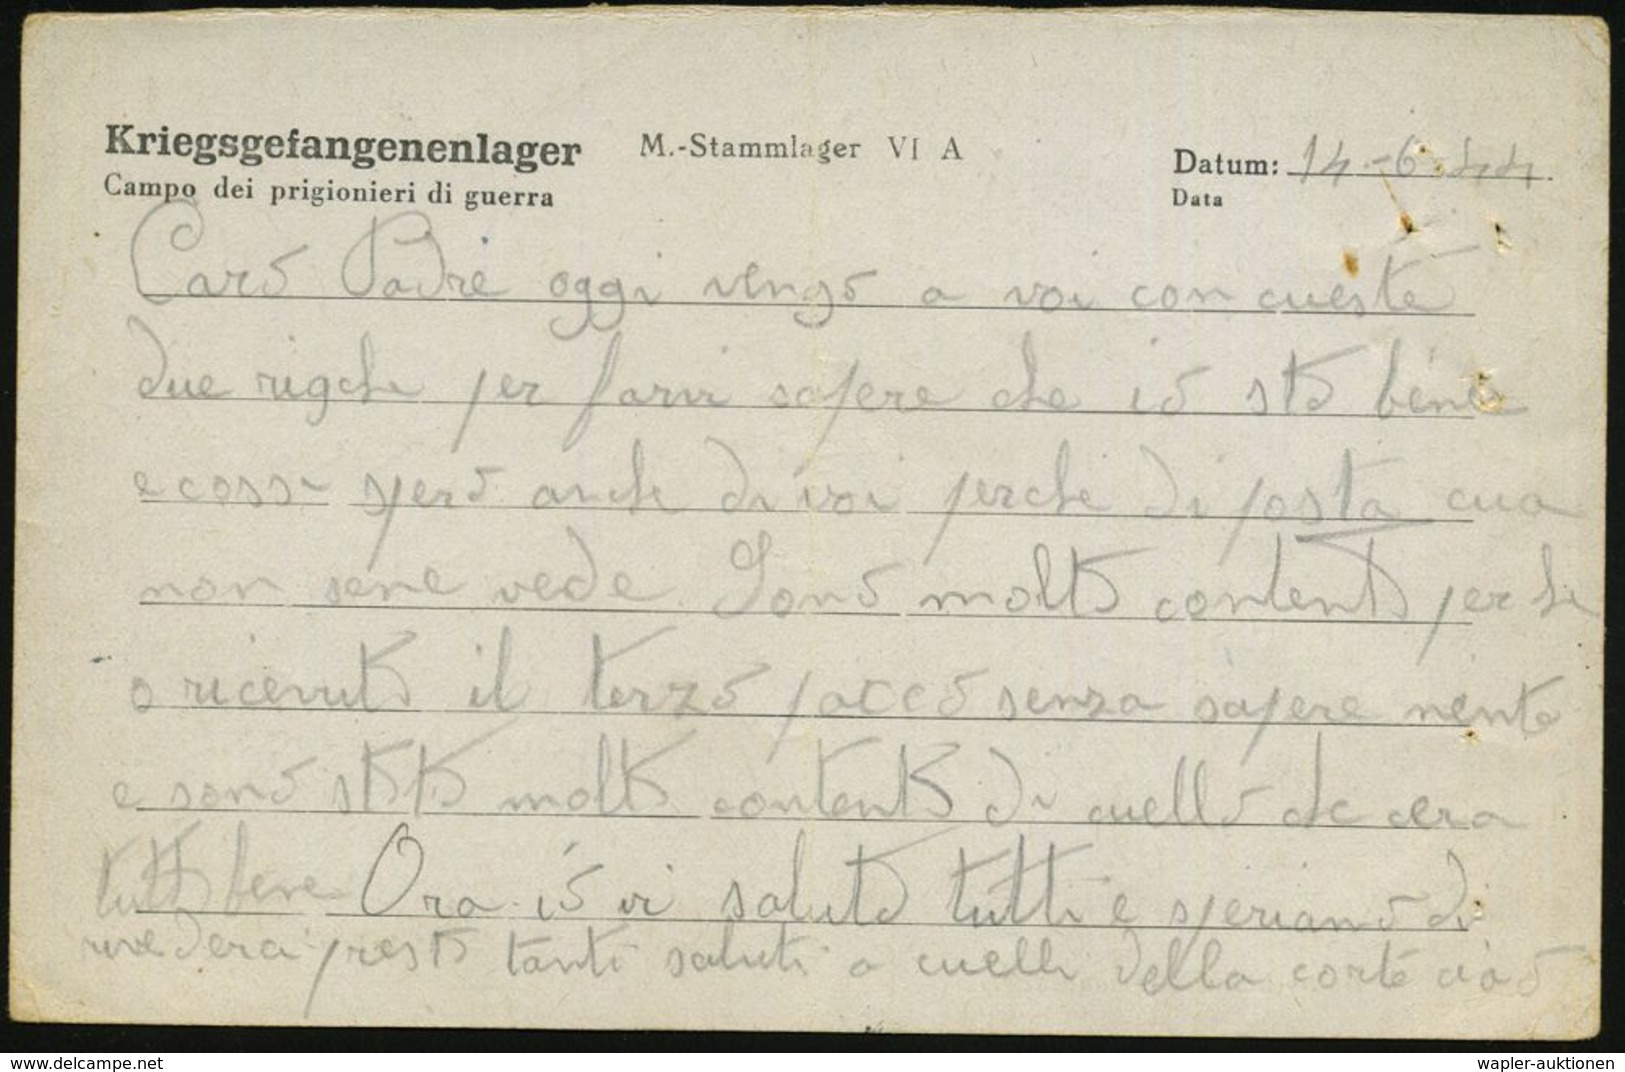 Kriegsgefangenenlager M.-Stammlager VI A Datum: 14-6-44
Campo dei prigionieri di guerra Data
Caro Padre oggi vengo a voi con cueste
due rigche per farvi sapere che io sto bene
e cossi spero anche di voi perche di posta cua
non sene vede. Sono molto contento perche
o ricevuto il terzo pacco senza sapere niente
e sono stato molto contento di cuello che cera
tutto bene Ora io vi saluto tutti e speriamo di
rivederci presto tanti saluti a cuelli della corte ciao
delcampe.net
wapler-auktionen